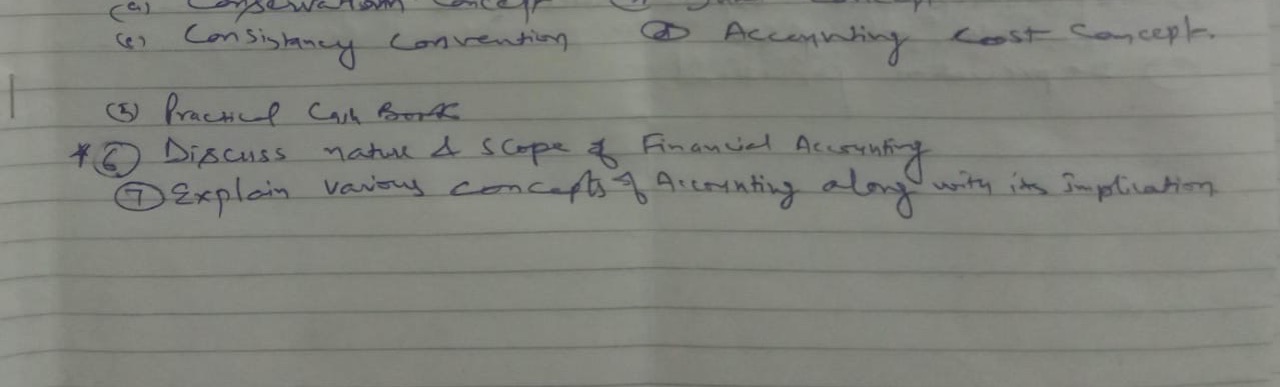 (a) Conservatism Concept
(c) Consistancy Convention (d) Accounting Cost Concept.
(5) Practical Cash Book
* (6) Discuss nature & scope of Financial Accounting
(7) Explain various concepts of Accounting along with its implication